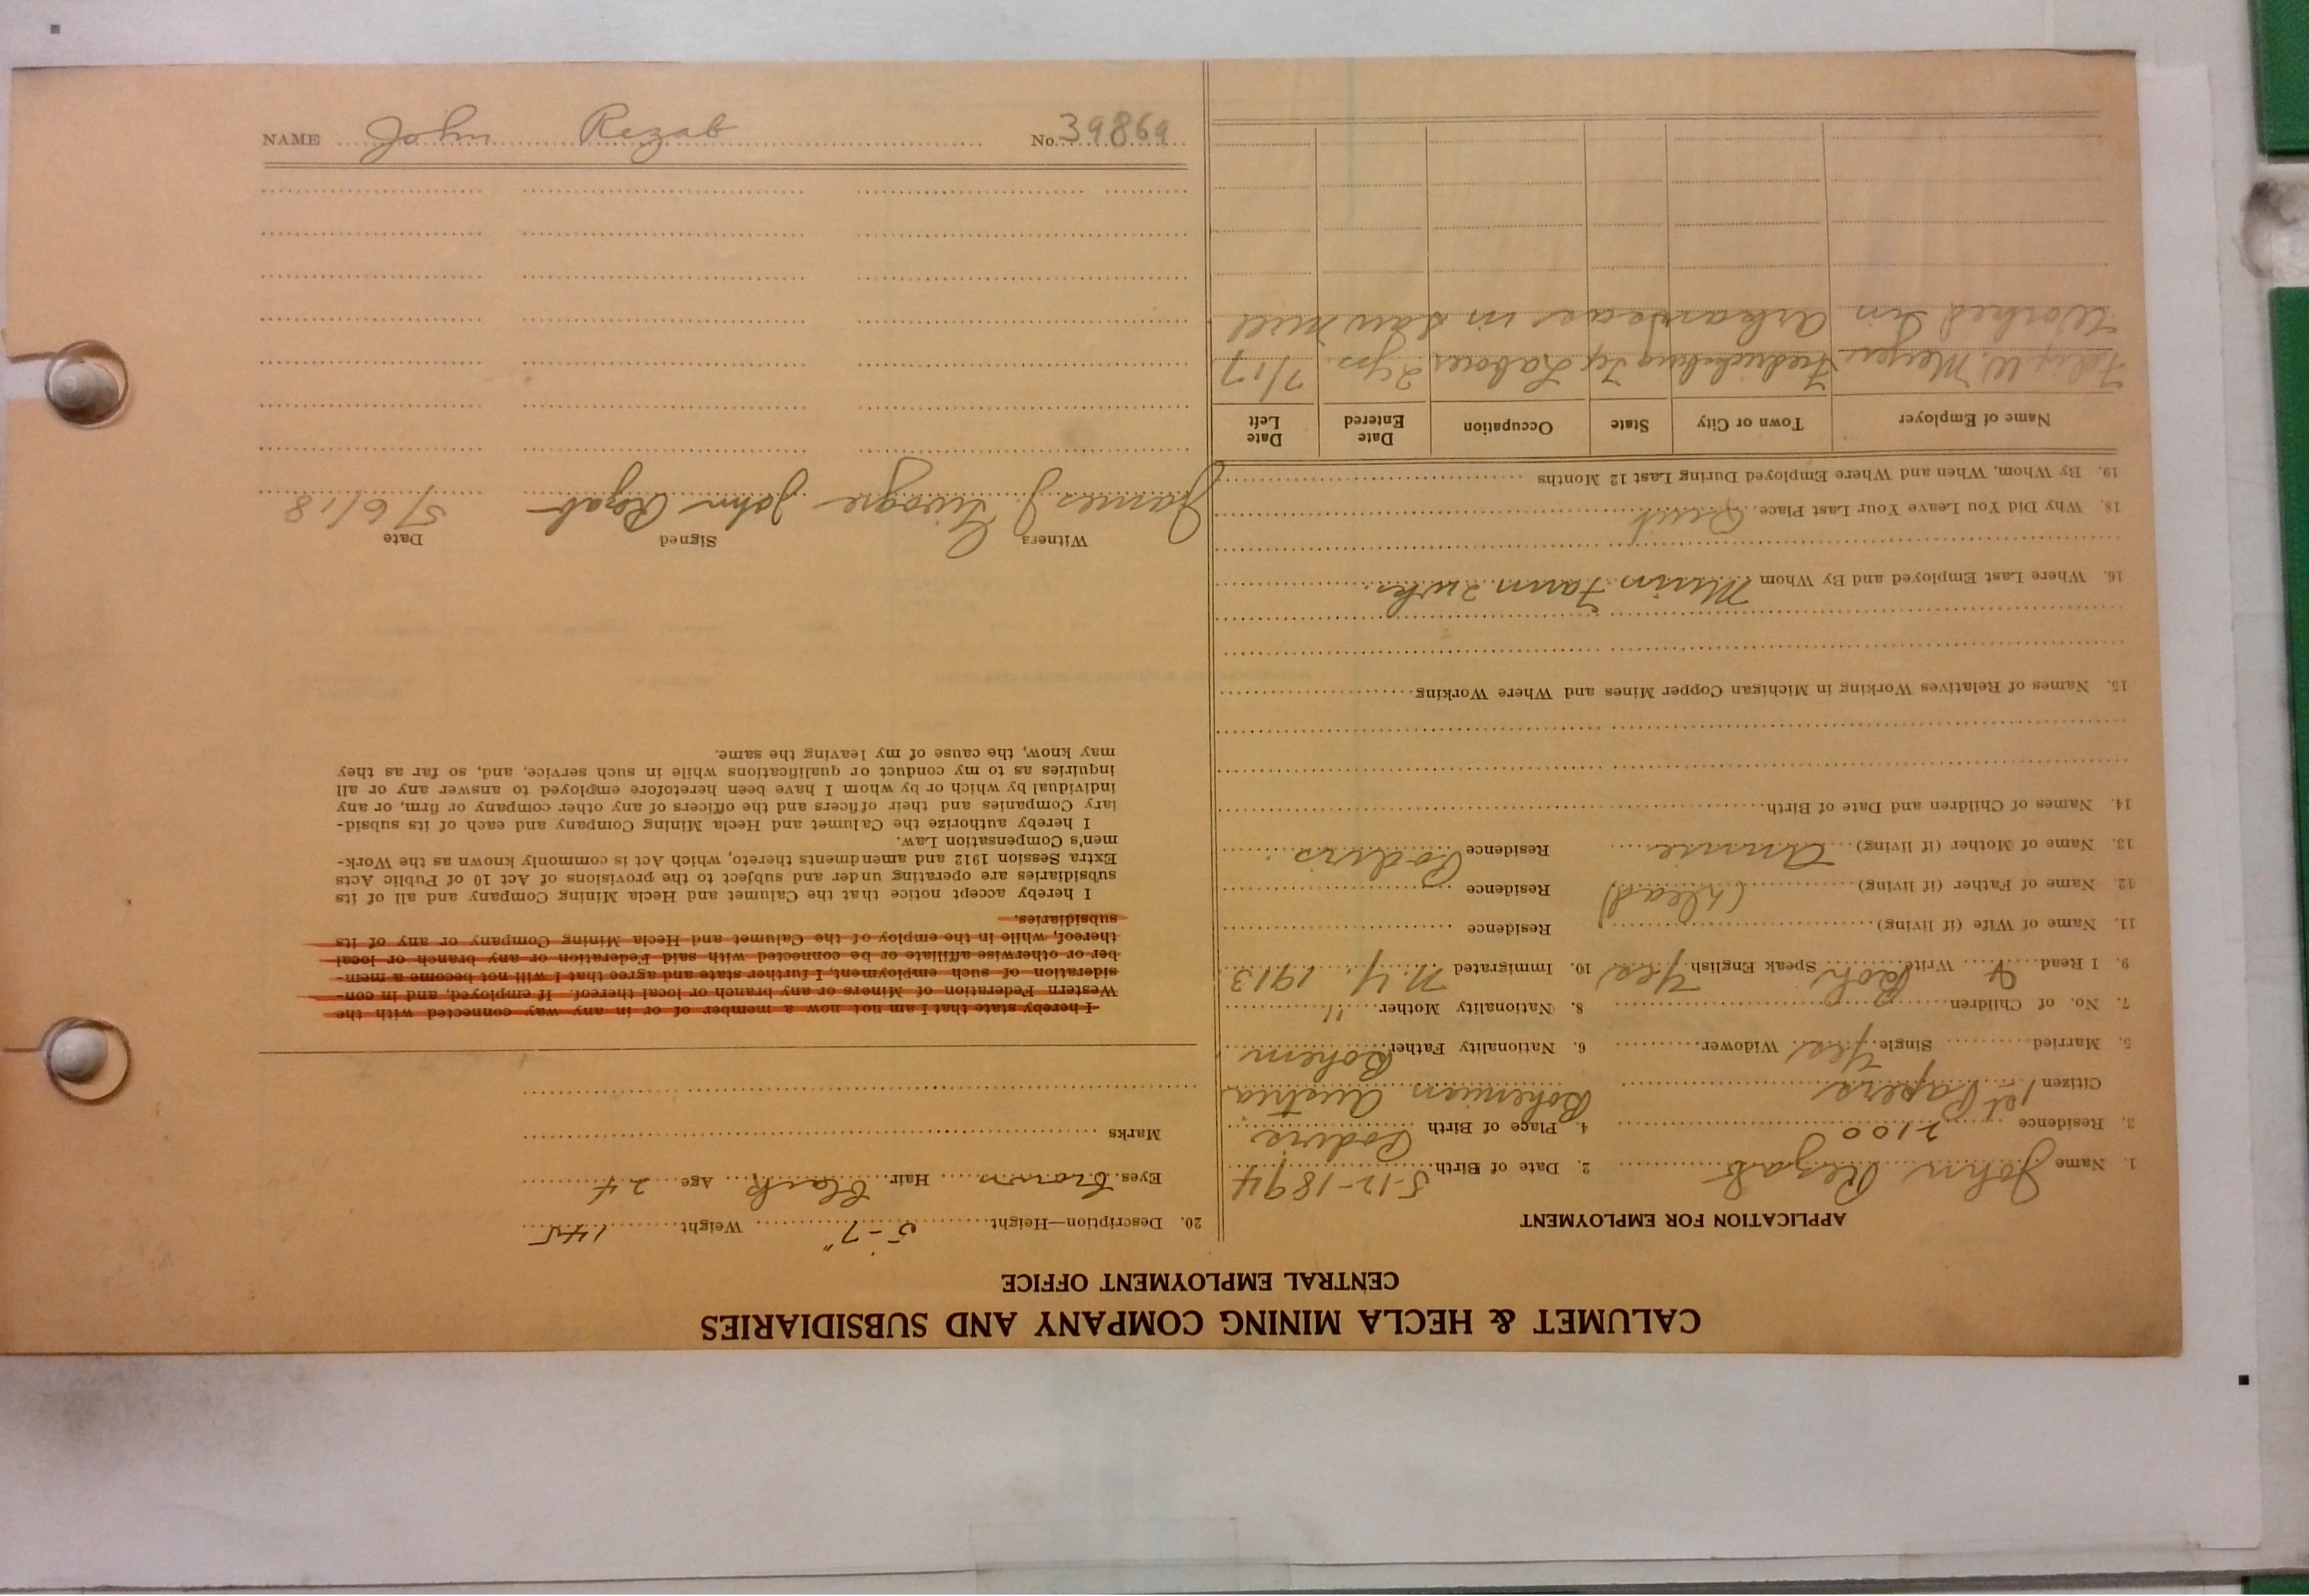 CALUMET & HECLA MINING COMPANY AND SUBSIDIARIES
CENTRAL EMPLOYMENT OFFICE
APPLICATION FOR EMPLOYMENT
1. Name John Rezab 2. Date of Birth 5-12-1894
3. Residence 2100 4. Place of Birth
Bohemian Austria
Citizen 1st Papers
5. Married Single Yes Widower 6. Nationality Father Bohem
7. No. of Children 8. Nationality Mother "
9. I Read Write Boh Speak English Yes 10. Immigrated N.Y. 1913
11. Name of Wife (if living) Residence
12. Name of Father (if living) (dead) Residence
13. Name of Mother (if living) Annie Residence
14. Names of Children and Date of Birth
15. Names of Relatives Working in Michigan Copper Mines and Where Working
16. Where Last Employed and By Whom Farm 2 wks.
18. Why Did You Leave Your Last Place Quit
19. By Whom, When and Where Employed During Last 12 Months
Name of Employer Town or City State Occupation Date Entered Date Left
W. Meyer Fredricksburg Tex Laborer 2 yrs. 7/17
Worked in Arkansas in Saw mill
20. Description—Height 5'-7" Weight 145
Eyes brown Hair black Age 24
Marks
I hereby state that I am not now a member of or in any way connected with the
Western Federation of Miners or any branch or local thereof. If employed, and in con-
sideration of such employment, I further state and agree that I will not become a mem-
ber or otherwise affiliate or be connected with said Federation or any branch or local
thereof, while in the employ of the Calumet and Hecla Mining Company or any of its
subsidiaries.
I hereby accept notice that the Calumet and Hecla Mining Company and all of its
subsidiaries are operating under and subject to the provisions of Act 10 of Public Acts
Extra Session 1912 and amendments thereto, which Act is commonly known as the Work-
men's Compensation Law.
I hereby authorize the Calumet and Hecla Mining Company and each of its subsid-
iary Companies and their officers and the officers of any other company or firm, or any
individual by which or by whom I have been heretofore employed to answer any or all
inquiries as to my conduct or qualifications while in such service, and, so far as they
may know, the cause of my leaving the same.
Witness Signed Date
James J. John Rezab 5/6/18
NAME John Rezab No. 39869